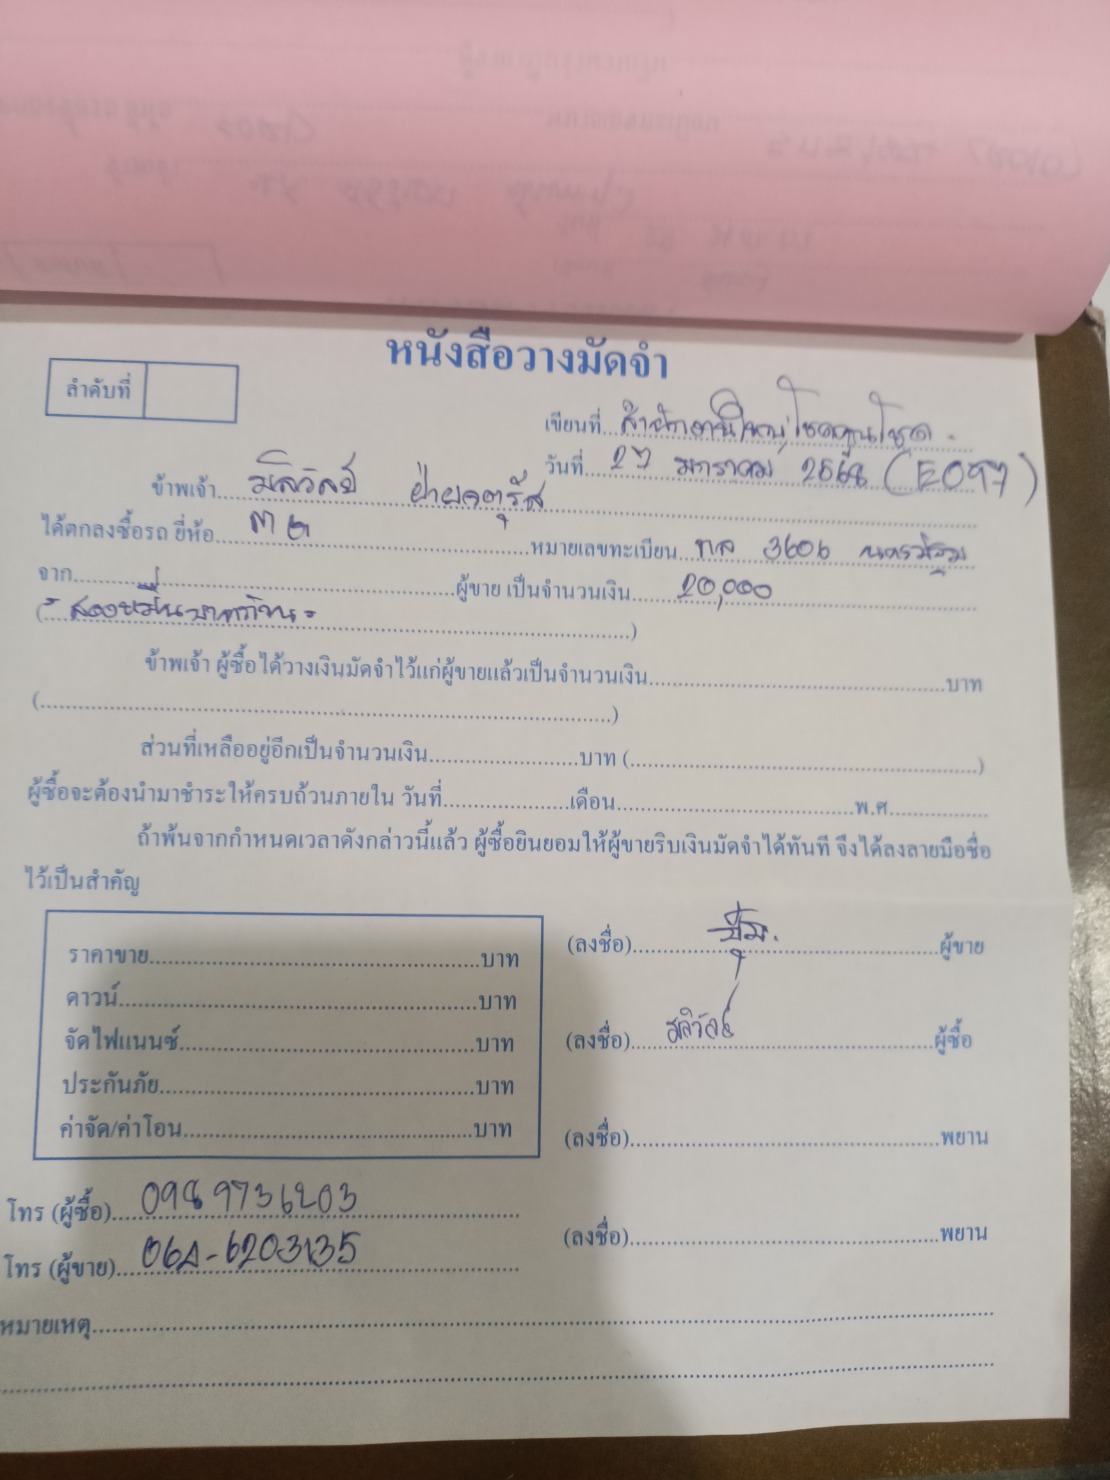 หนังสือวางมัดจำ
ลำดับที่
เขียนที่ สำนักงานใหญ่ โชคคูณโชค
วันที่ 27 มกราคม 2568 (E097)
ข้าพเจ้า มลิวัลย์ ฝ่ายจตุรัส
ได้ตกลงซื้อรถ ยี่ห้อ MG หมายเลขทะเบียน 3606 นครปฐม
จาก ผู้ขาย เป็นจำนวนเงิน 20,000
(= สองหมื่นบาทถ้วน = )
ข้าพเจ้า ผู้ซื้อได้วางเงินมัดจำไว้แก่ผู้ขายแล้วเป็นจำนวนเงิน บาท
( )
ส่วนที่เหลืออยู่อีกเป็นจำนวนเงิน บาท ( )
ผู้ซื้อจะต้องนำมาชำระให้ครบถ้วนภายใน วันที่ เดือน พ.ศ.
ถ้าพ้นจากกำหนดเวลาดังกล่าวนี้แล้ว ผู้ซื้อยินยอมให้ผู้ขายริบเงินมัดจำได้ทันที จึงได้ลงลายมือชื่อ
ไว้เป็นสำคัญ
ราคาขาย บาท
ดาวน์ บาท
จัดไฟแนนซ์ บาท
ประกันภัย บาท
ค่าจัด/ค่าโอน บาท
(ลงชื่อ) ผู้ขาย
(ลงชื่อ) มลิวัลย์ ผู้ซื้อ
(ลงชื่อ) พยาน
(ลงชื่อ) พยาน
โทร (ผู้ซื้อ) 0989736203
โทร (ผู้ขาย) 064-6203135
หมายเหตุ